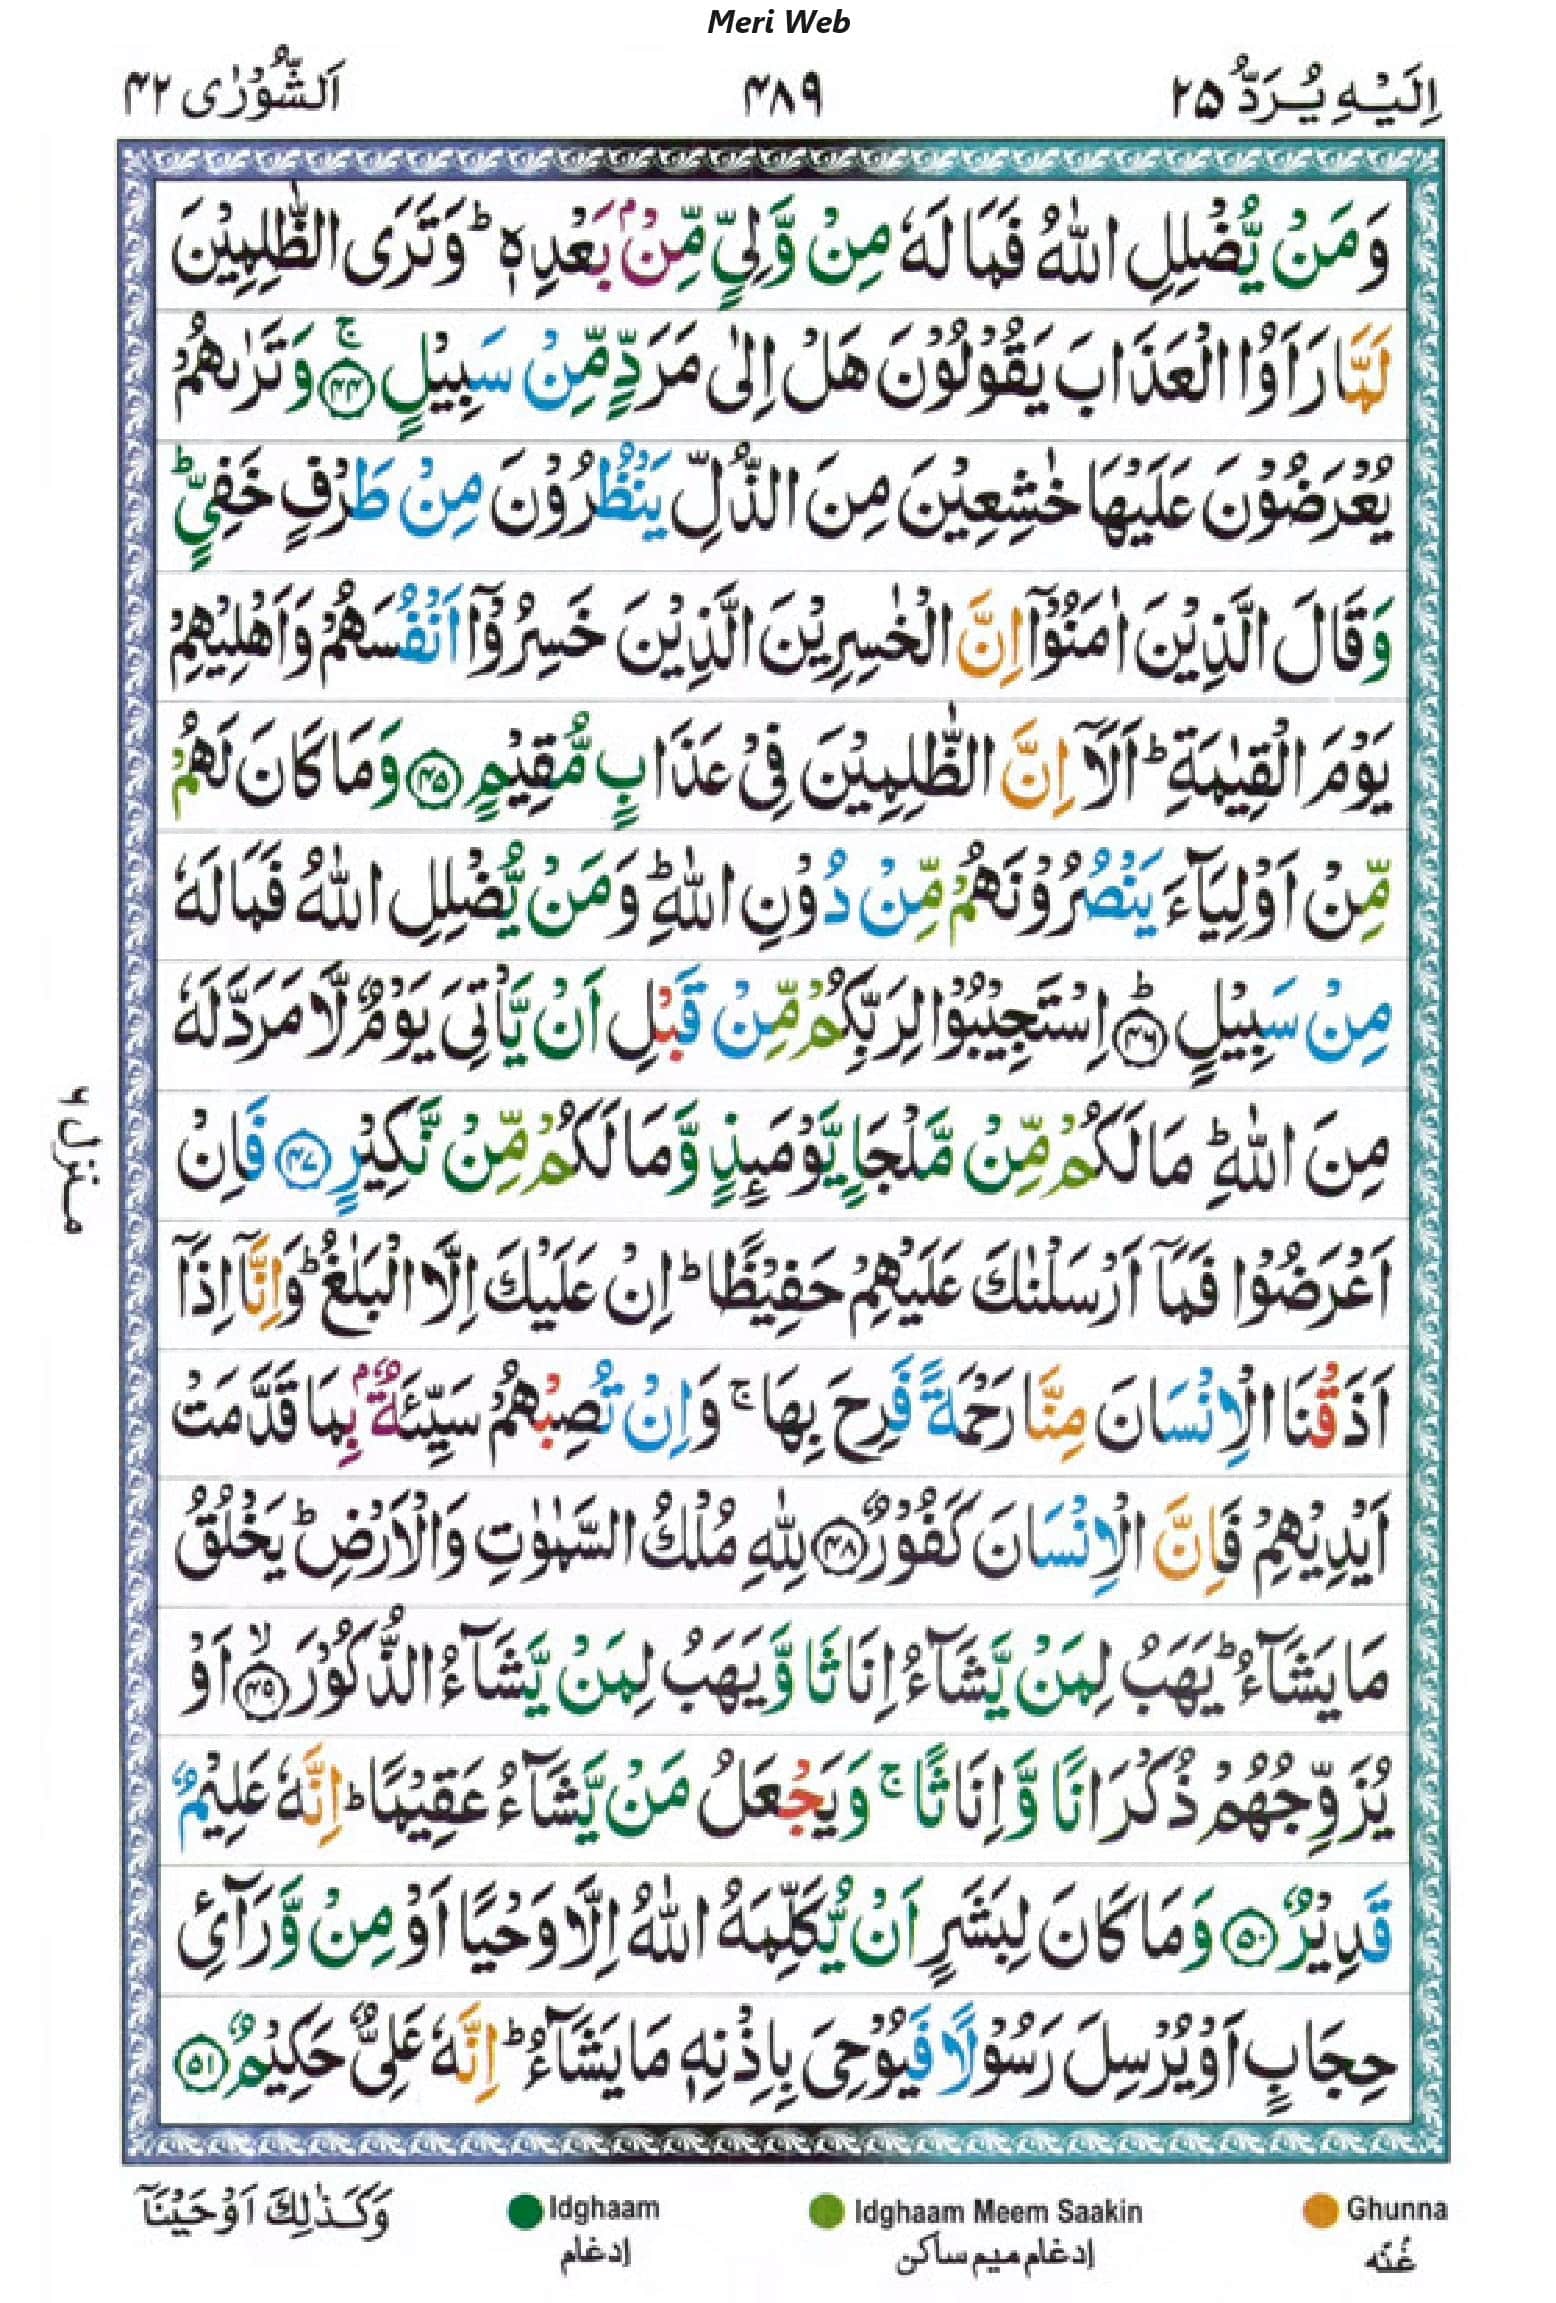 Meri Web
اِلَیْهِ یُرَدُّ ۲۵
۴۸۹
اَلشُّوْرٰی ۴۲
وَمَنْ یُّضْلِلِ اللّٰهُ فَمَا لَهٗ مِنْ وَّلِیٍّ مِّنْۢ بَعْدِهٖ ؕ وَتَرَی الظّٰلِمِیْنَ
لَمَّا رَاَوُا الْعَذَابَ یَقُوْلُوْنَ هَلْ اِلٰی مَرَدٍّ مِّنْ سَبِیْلٍ ۚ﴿۴۴﴾ وَتَرٰىهُمْ
یُعْرَضُوْنَ عَلَیْهَا خٰشِعِیْنَ مِنَ الذُّلِّ یَنْظُرُوْنَ مِنْ طَرْفٍ خَفِیٍّ ؕ
وَقَالَ الَّذِیْنَ اٰمَنُوْۤا اِنَّ الْخٰسِرِیْنَ الَّذِیْنَ خَسِرُوْۤا اَنْفُسَهُمْ وَاَهْلِیْهِمْ
یَوْمَ الْقِیٰمَةِ ؕ اَلَاۤ اِنَّ الظّٰلِمِیْنَ فِیْ عَذَابٍ مُّقِیْمٍ ﴿۴۵﴾ وَمَا كَانَ لَهُمْ
مِّنْ اَوْلِیَآءَ یَنْصُرُوْنَهُمْ مِّنْ دُوْنِ اللّٰهِ ؕ وَمَنْ یُّضْلِلِ اللّٰهُ فَمَا لَهٗ
مِنْ سَبِیْلٍ ؕ﴿۴۶﴾ اِسْتَجِیْبُوْا لِرَبِّكُمْ مِّنْ قَبْلِ اَنْ یَّاْتِیَ یَوْمٌ لَّا مَرَدَّ لَهٗ
مِنَ اللّٰهِ ؕ مَا لَكُمْ مِّنْ مَّلْجَاٍ یَّوْمَىِٕذٍ وَّمَا لَكُمْ مِّنْ نَّكِیْرٍ ﴿۴۷﴾ فَاِنْ
اَعْرَضُوْا فَمَاۤ اَرْسَلْنٰكَ عَلَیْهِمْ حَفِیْظًا ؕ اِنْ عَلَیْكَ اِلَّا الْبَلٰغُ ؕ وَاِنَّاۤ اِذَاۤ
اَذَقْنَا الْاِنْسَانَ مِنَّا رَحْمَةً فَرِحَ بِهَا ۚ وَاِنْ تُصِبْهُمْ سَیِّئَةٌۢ بِمَا قَدَّمَتْ
اَیْدِیْهِمْ فَاِنَّ الْاِنْسَانَ كَفُوْرٌ ﴿۴۸﴾ لِلّٰهِ مُلْكُ السَّمٰوٰتِ وَالْاَرْضِ ؕ یَخْلُقُ
مَا یَشَآءُ ؕ یَهَبُ لِمَنْ یَّشَآءُ اِنَاثًا وَّیَهَبُ لِمَنْ یَّشَآءُ الذُّكُوْرَ ۙ﴿۴۹﴾ اَوْ
یُزَوِّجُهُمْ ذُكْرَانًا وَّاِنَاثًا ۚ وَیَجْعَلُ مَنْ یَّشَآءُ عَقِیْمًا ؕ اِنَّهٗ عَلِیْمٌ
قَدِیْرٌ ﴿۵۰﴾ وَمَا كَانَ لِبَشَرٍ اَنْ یُّكَلِّمَهُ اللّٰهُ اِلَّا وَحْیًا اَوْ مِنْ وَّرَآئِ
حِجَابٍ اَوْ یُرْسِلَ رَسُوْلًا فَیُوْحِیَ بِاِذْنِهٖ مَا یَشَآءُ ؕ اِنَّهٗ عَلِیٌّ حَكِیْمٌ ﴿۵۱﴾
منزل ۶
وَكَذٰلِكَ اَوْحَیْنَاۤ
Idghaam
اِدغام
Idghaam Meem Saakin
اِدغام میم ساکن
Ghunna
غُنّه